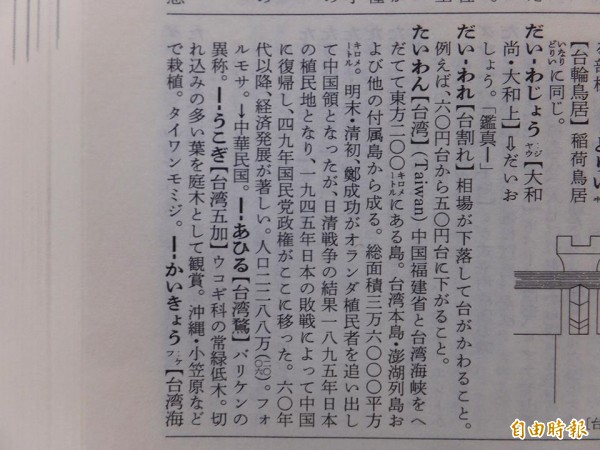 【台輪鳥居】 稲荷鳥居
いなりどりいに同じ。
だい‐わじょう‥ジヤウ【大和
尚・大和上】⇨だいお
しょう。「鑑真―」
だい‐われ【台割れ】相場が下落して台がかわること。
例えば、六〇円台から五〇円台に下がること。
たいわん【台湾】(Taiwan) 中国福建省と台湾海峡をへ
だてて東方二〇〇キロメートルにある島。台湾本島・澎湖列島お
よび他の付属島から成る。総面積三万六〇〇〇平方
キロメートル。明末・清初、鄭成功がオランダ植民者を追い出し
て中国領となったが、日清戦争の結果一八九五年日本
の植民地となり、一九四五年日本の敗戦によって中国
に復帰し、四九年国民党政権がここに移った。六〇年
代以降、経済発展が著しい。人口二二八八万。フォ
ルモサ。→中華民国。―‐あひる【台湾鶩】バリケンの
異称。―‐うこぎ【台湾五加】ウコギ科の常緑低木。切
れ込みの多い葉を庭木として観賞。沖縄・小笠原など
で栽植。タイワンモミジ。―‐かいきょう【台湾海
自由時報